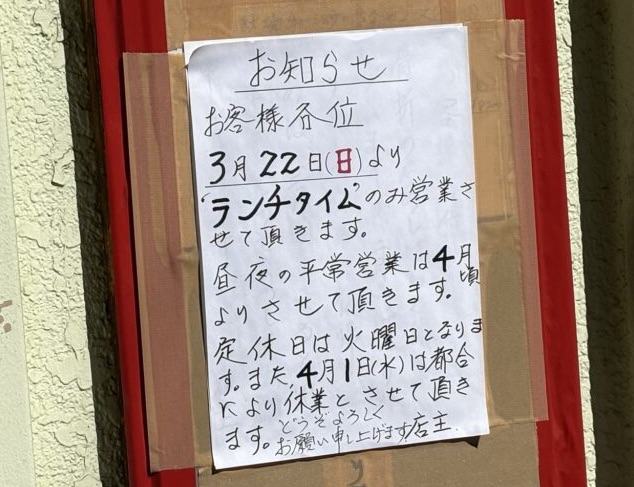 お知らせ
お客様各位
3月22日(日)より
"ランチタイム"のみ営業さ
せて頂きます。
昼夜の平常営業は4月頃
よりさせて頂きます。
定休日は火曜日となりま
す。また、4月1日(水)は都合
により休業とさせて頂き
ます。どうぞよろしく
お願い申し上げます店主